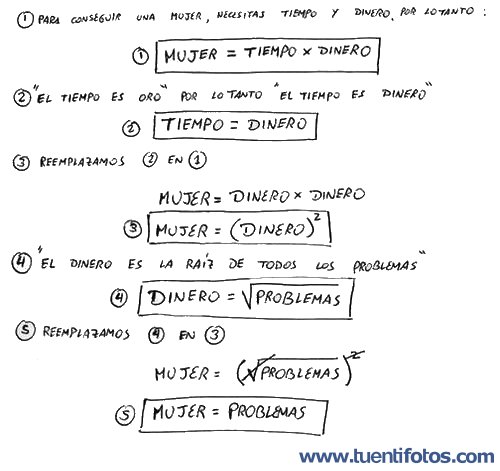 ① PARA CONSEGUIR UNA MUJER, NECESITAS TIEMPO Y DINERO, POR LO TANTO:
① MUJER = TIEMPO × DINERO
② "EL TIEMPO ES ORO" POR LO TANTO "EL TIEMPO ES DINERO"
② TIEMPO = DINERO
③ REEMPLAZAMOS ② EN ①
MUJER = DINERO × DINERO
③ MUJER = (DINERO)²
④ "EL DINERO ES LA RAÍZ DE TODOS LOS PROBLEMAS"
④ DINERO = √PROBLEMAS
⑤ REEMPLAZAMOS ④ EN ③
MUJER = (√PROBLEMAS)²
⑤ MUJER = PROBLEMAS
www.tuentifotos.com